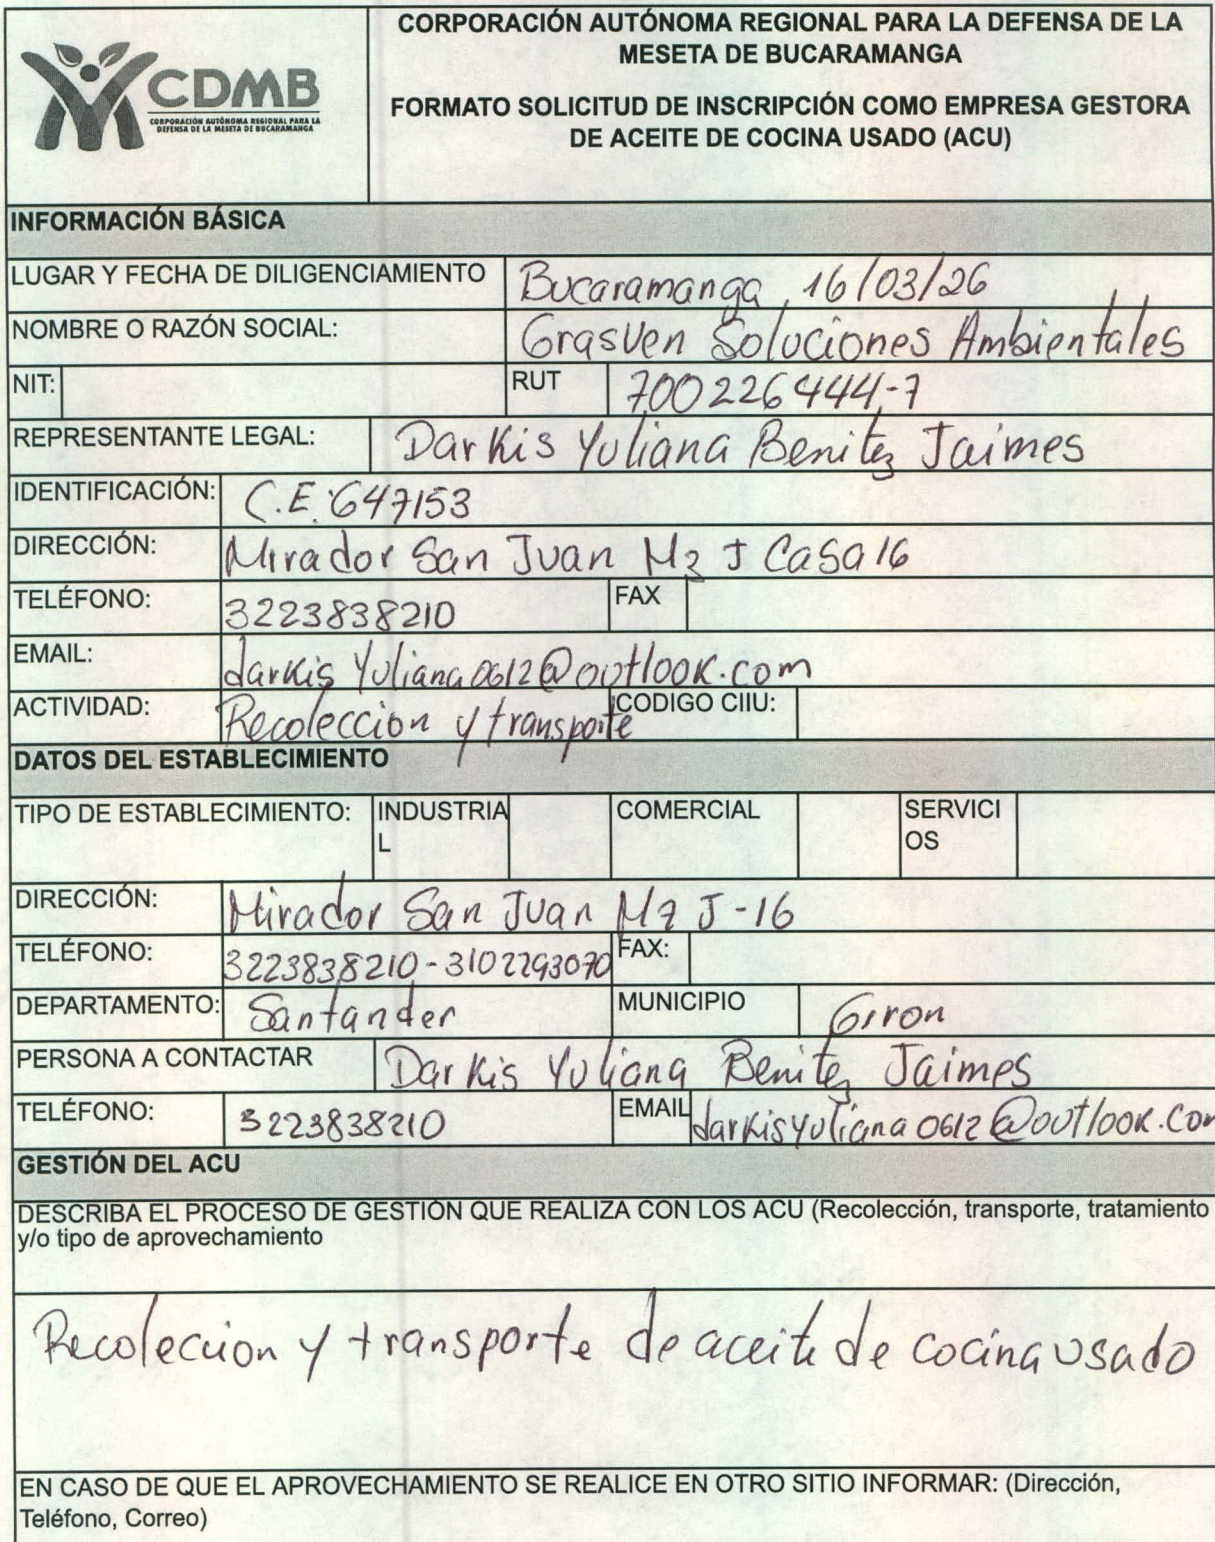 CDMB
CORPORACIÓN AUTÓNOMA REGIONAL PARA LA
DEFENSA DE LA MESETA DE BUCARAMANGA
CORPORACIÓN AUTÓNOMA REGIONAL PARA LA DEFENSA DE LA
MESETA DE BUCARAMANGA
FORMATO SOLICITUD DE INSCRIPCIÓN COMO EMPRESA GESTORA
DE ACEITE DE COCINA USADO (ACU)
INFORMACIÓN BÁSICA
LUGAR Y FECHA DE DILIGENCIAMIENTO Bucaramanga, 16/03/26
NOMBRE O RAZÓN SOCIAL: Grasven Soluciones Ambientales
NIT: RUT 700226444-7
REPRESENTANTE LEGAL: Darkis Yuliana Benitez Jaimes
IDENTIFICACIÓN: C.E. 647153
DIRECCIÓN: Mirador San Juan Mz J Casa 16
TELÉFONO: 3223838210 FAX
EMAIL: darkisYuliana0612@outlook.com
ACTIVIDAD: Recoleccion y transporte CODIGO CIIU:
DATOS DEL ESTABLECIMIENTO
TIPO DE ESTABLECIMIENTO: INDUSTRIA COMERCIAL SERVICI
L OS
DIRECCIÓN: Mirador San Juan Mz J -16
TELÉFONO: 3223838210 - 3102293070 FAX:
DEPARTAMENTO: Santander MUNICIPIO Giron
PERSONA A CONTACTAR Darkis Yuliana Benitez Jaimes
TELÉFONO: 3223838210 EMAIL darkisyuliana0612@outlook.com
GESTIÓN DEL ACU
DESCRIBA EL PROCESO DE GESTIÓN QUE REALIZA CON LOS ACU (Recolección, transporte, tratamiento
y/o tipo de aprovechamiento
Recoleccion y transporte de aceite de cocina usado
EN CASO DE QUE EL APROVECHAMIENTO SE REALICE EN OTRO SITIO INFORMAR: (Dirección,
Teléfono, Correo)